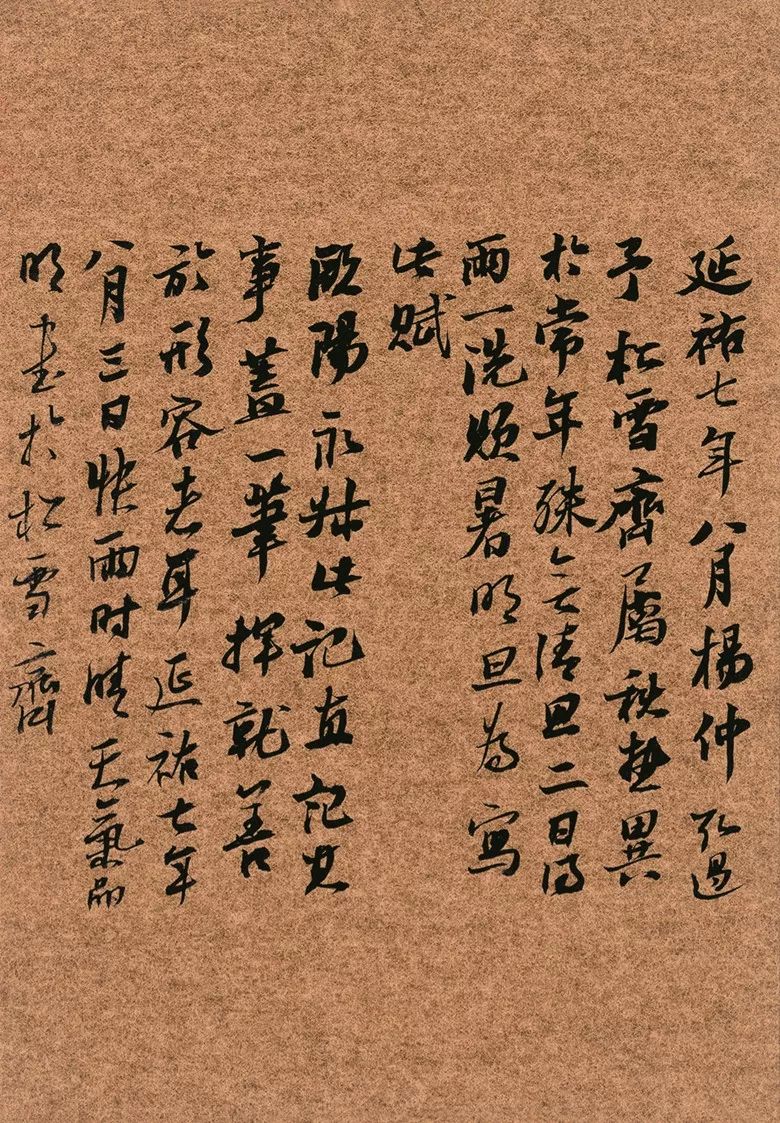 延祐七年八月楊仲弘過
予松雪齋屬秋熱異
於常年殊無清思二日得
雨一洗煩暑明旦為寫
此賦
歐陽永叔此記直記其
事蓋一筆揮就善
於形容者耳延祐七年
八月三日快雨時晴天氣
明書於松雪齋